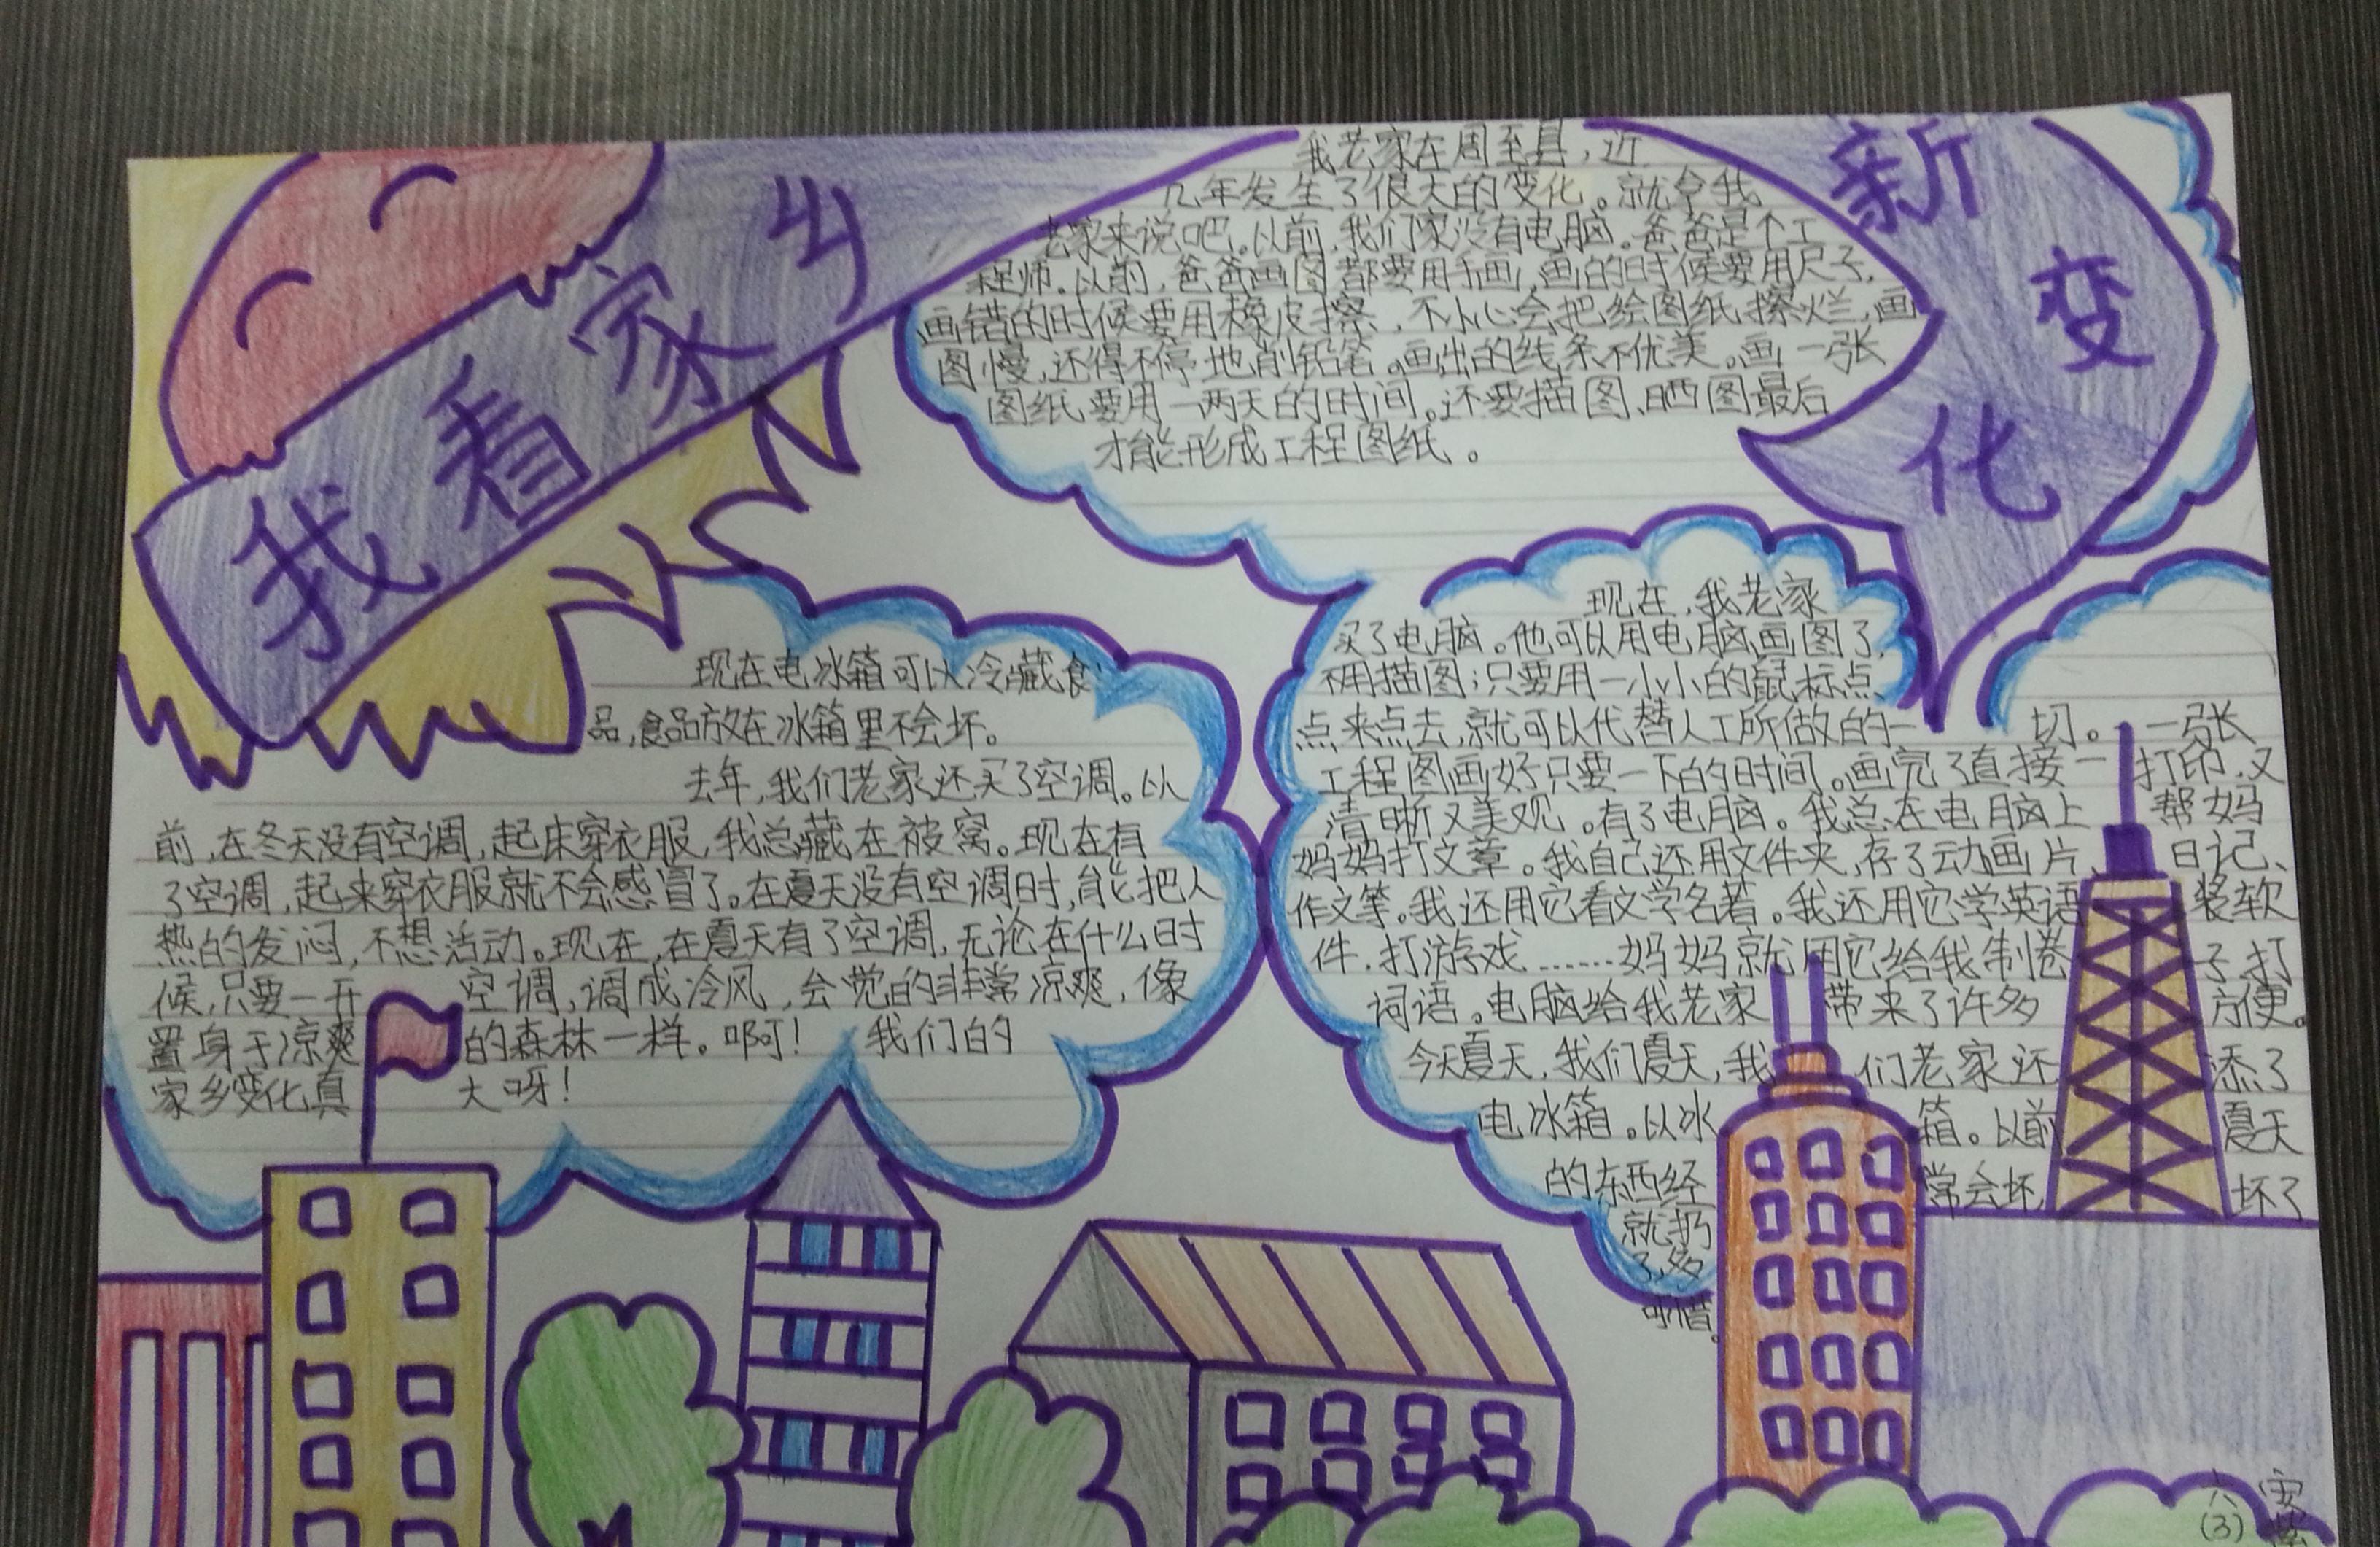 我看家乡
新变化
我老家在周至县，近
几年发生了很大的变化。就拿我
老家来说吧。以前，我们家没有电脑。爸爸是个工
程师。以前，爸爸画图都要用手画，画的时候要用尺子，
画错的时候要用橡皮擦，不小心会把绘图纸擦烂，画
图慢，还得不停地削铅笔。画出的线条不优美。画一张
图纸要用一两天的时间。还要描图、晒图最后
才能形成工程图纸。
现在，我老家
买了电脑。他可以用电脑画图了，
不用描图；只要用一小小的鼠标点
点来点去，就可以代替人工所做的一切。一张
工程图画好只要一下的时间。画完了直接一打印，又
清晰又美观。有了电脑。我总在电脑上帮妈
妈妈打文章。我自己还用文件夹，存了动画片、日记、
作文等。我还用它看文学名著。我还用它学英语、装软
件，打游戏……妈妈就用它给我制卷子，打
词语。电脑给我老家带来了许多方便。
今天夏天，我们夏天，我们老家还添了
电冰箱。以冰箱。以前夏天
的东西经常会坏，坏了
就扔
了，多
可惜。
现在电冰箱可以冷藏食
品，食品放在冰箱里不会坏。
去年，我们老家还买了空调。以
前，在冬天没有空调，起床穿衣服，我总藏在被窝。现在有
了空调，起来穿衣服就不会感冒了。在夏天没有空调时，能把人
热的发闷，不想活动。现在，在夏天有了空调，无论在什么时
候，只要一开空调，调成冷风，会觉的非常凉爽，像
置身于凉爽的森林一样。啊！我们的
家乡变化真大呀！
六(3)